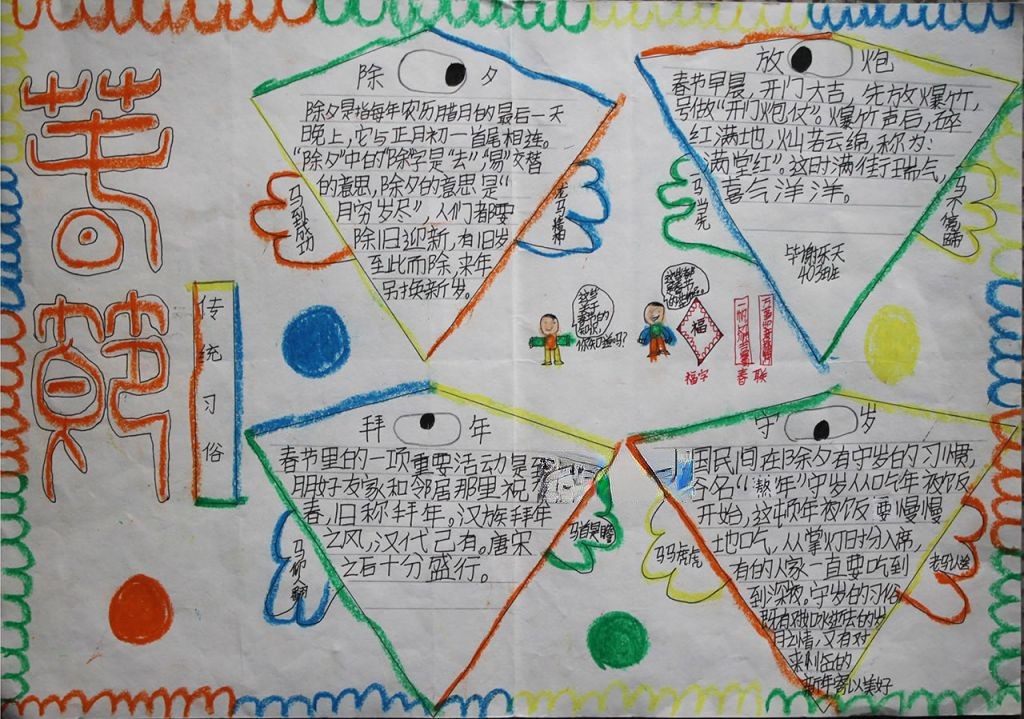 春
節
传统习俗
除夕
除夕是指每年农历腊月的最后一天
晚上,它与正月初一首尾相连。
“除夕”中的“除”字是“去”,“易”交替
的意思,除夕的意思是“
月穷岁尽”,人们都要
除旧迎新,有旧岁
至此而除,来年
另换新岁。
马到成功
放炮
春节早晨,开门大吉,先放爆竹,
号做“开门炮仗”。爆竹声后,碎
红满地,灿若云绵,称为:
“满堂红”。这时满街瑞气,
喜气洋洋。
毕谢乐天
403班
马当先
马不停蹄
你知道吗?
福
福字
春联
拜年
春节里的一项重要活动是到
朋好友家和邻居那里祝
春,旧称拜年。汉族拜年
之风,汉代已有。唐宋
之后十分盛行。
马首是瞻
守岁
国民间在除夕有守岁的习惯,
俗名“熬年”守岁从吃年夜饭
开始,这顿年夜饭要慢慢
地吃,从掌灯时分入席,
有的人家一直要吃到
到深夜。守岁的习俗
既有对如水逝去的岁
月之情,又有对
来临的
新年寄以美好
马马虎虎